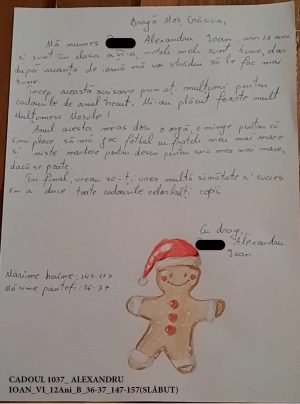 Dragă Moș Crăciun,
Mă numesc Alexandru Ioan, am 12 ani
și sunt în clasa a VI-a. Notele mele sunt bune, dar
după vacanța de iarnă mă voi strădui să le fac mai
bune.
Încep această scrisoare prin a-ți mulțumi pentru
cadourile de anul trecut. Mi-au plăcut foarte mult
Mulțumesc Moșule!
Anul acesta, mi-aș dori o minge pentru că
îmi place să mă joc fotbal cu fratele meu mai mare
și niște markere pentru desen pentru sora mea mai mare,
dacă se poate.
În final, vreau să-ți urez multă sănătate și succes
în a duce toate cadourile celorlalți copii
Cu drag,
Alexandru
Ioan
Mărime haine: 147-157
Mărime pantofi: 36-37
CADOUL 1037_ ALEXANDRU
IOAN_VI_12Ani_B_36-37_147-157(SLĂBUȚ)